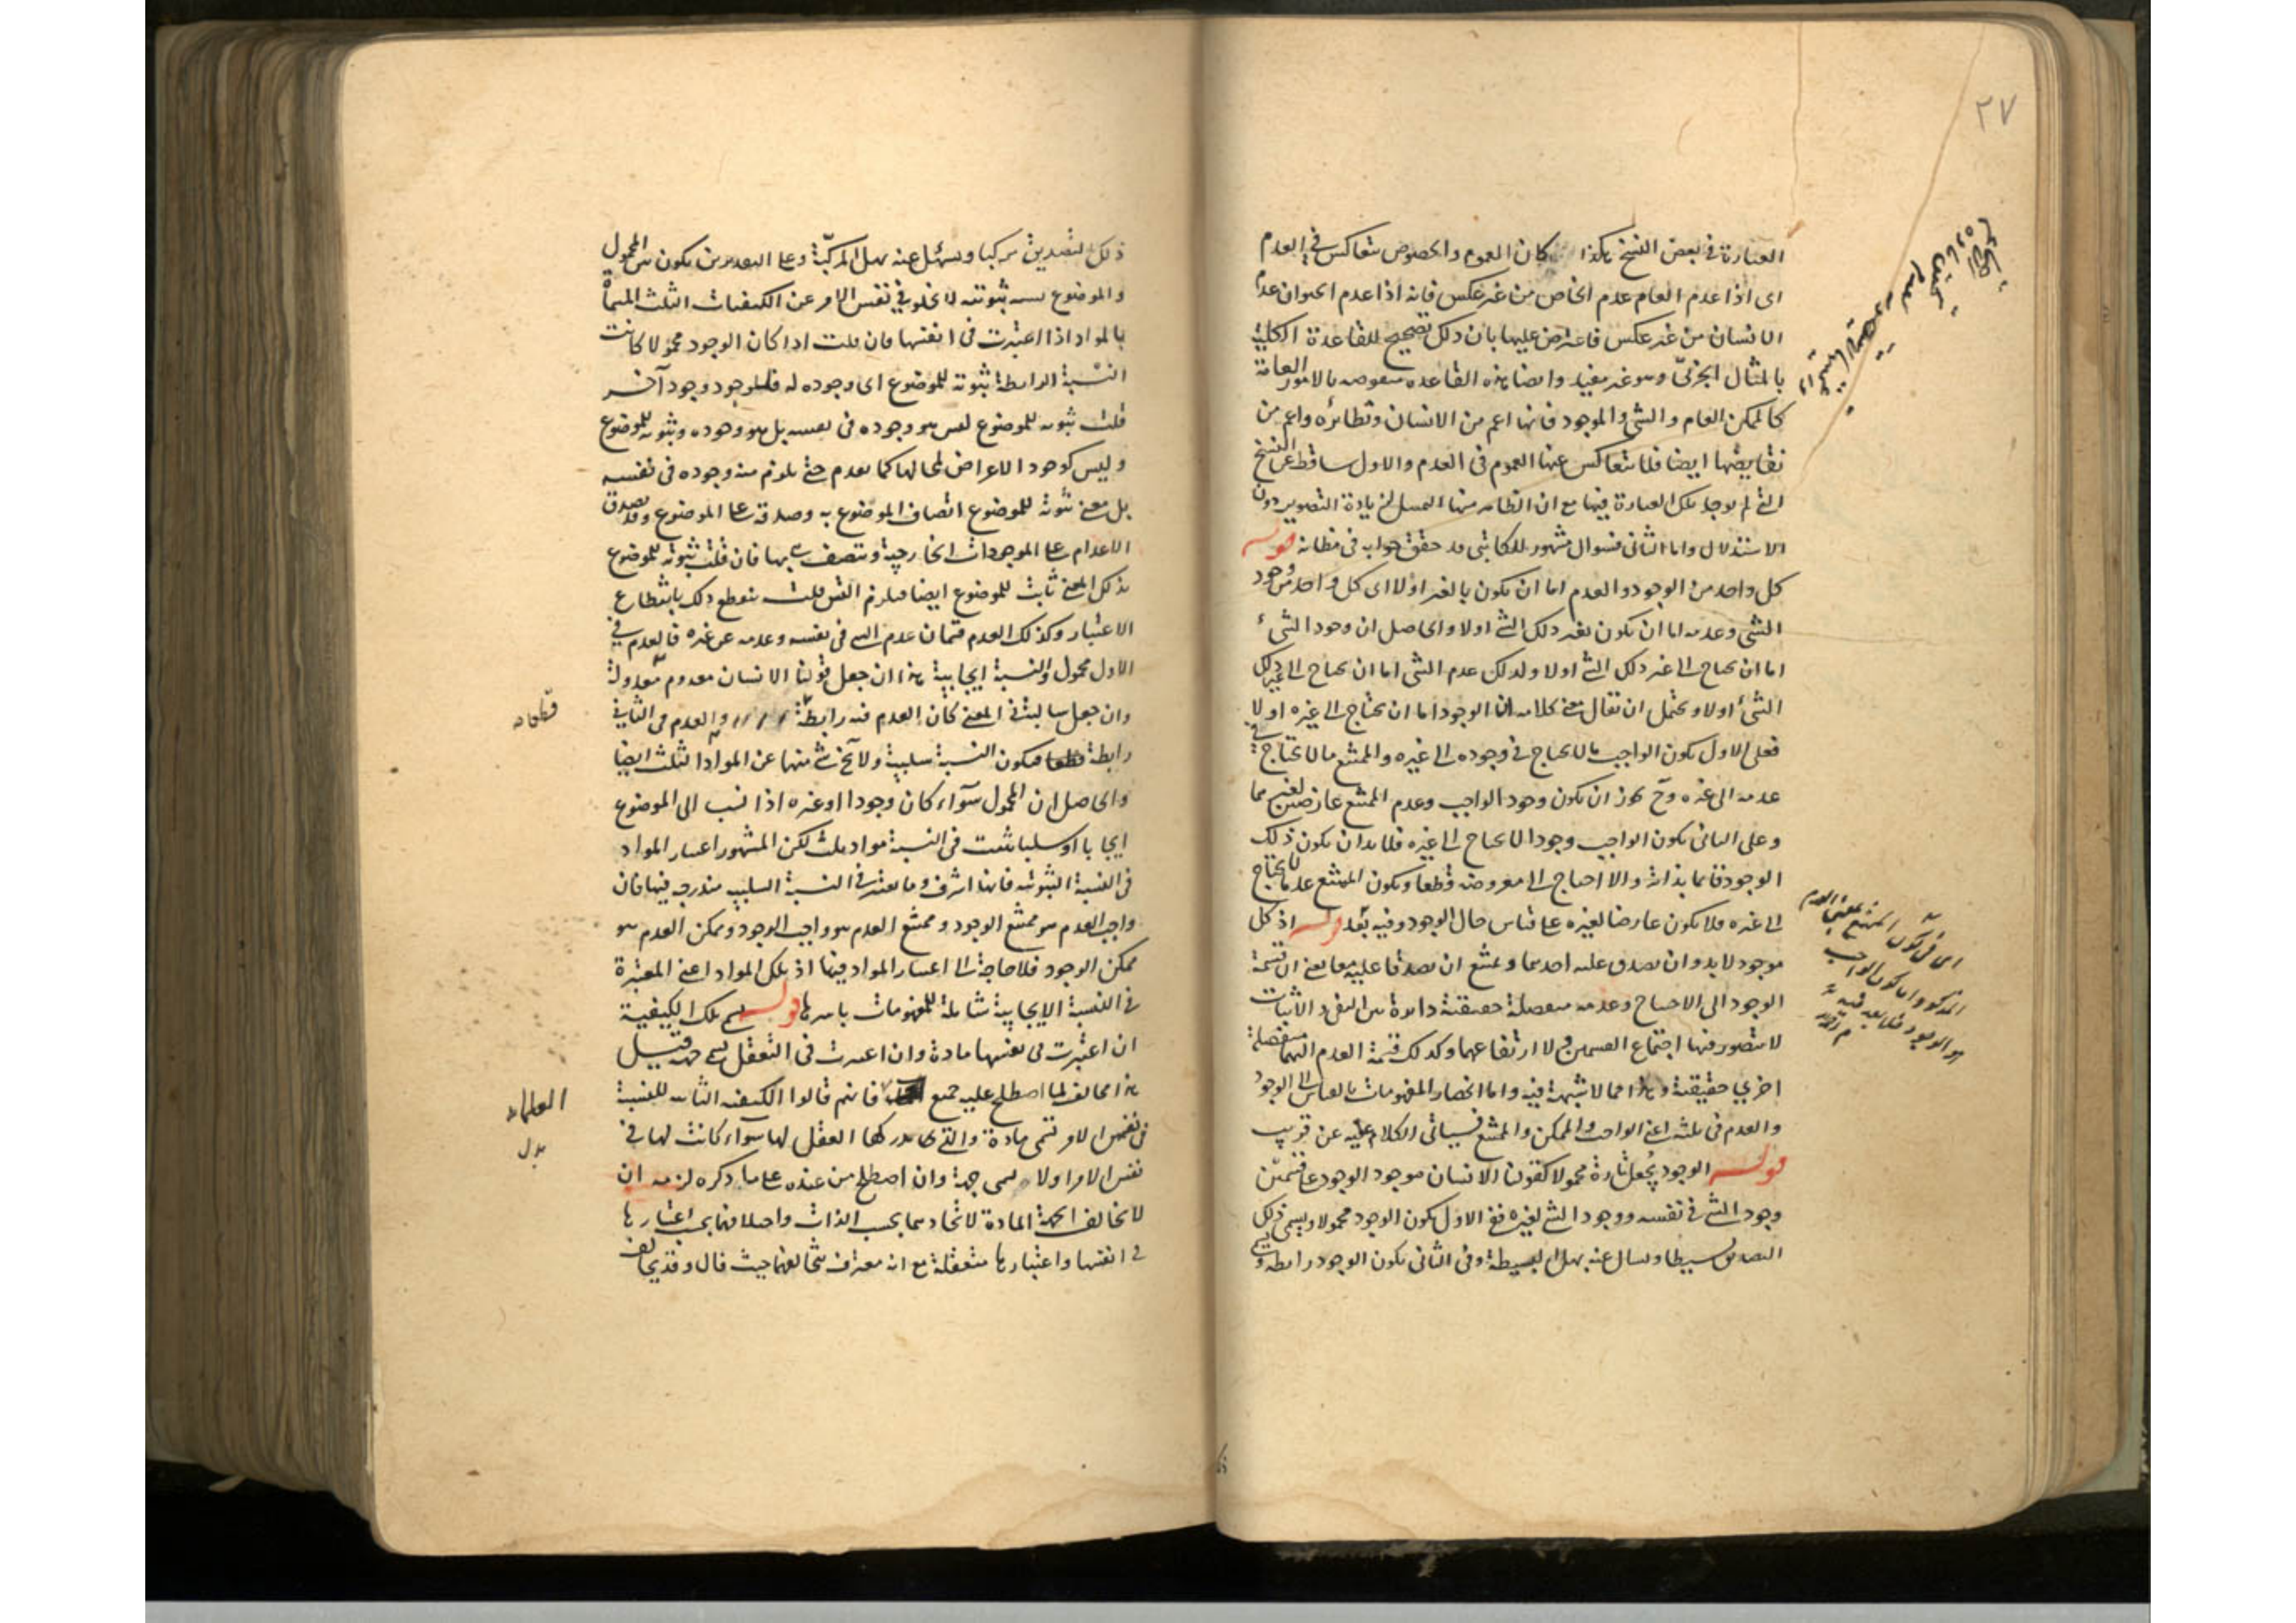 ٢٧
العبارة في بعض النسخ هكذا كان العموم والخصوص يتعاكس في العدم
اى اذا عدم العام عدم الخاص من غير عكس فانه اذا عدم الحيوان عدم
الانسان من غير عكس فاعترض عليها بان ذلك تصحيح للقاعدة الكلية
بالمثال الجزئى وهو غير مفيد وايضا هذه القاعدة منقوضه بالامور العامة
كالممكن العام والشئ والموجود فانها اعم من الانسان ونظائره واعم من
نقايضها ايضا فلا يتعاكس عنها العموم فى العدم والاول ساقط عن النسخ
التى لم يوجد تلك العبارة فيها مع ان الظاهر منها التمسك لزيادة التصوير دون
الاستدلال واما الثانى فسوال مشهور للكاتبى قد حقق جوابه فى مظانه قوله
كل واحد من الوجود والعدم اما ان يكون بالغير اولا اى كل واحد من وجود
الشئ وعدمه اما ان يكون بغير ذلك الشئ اولا والحاصل ان وجود الشئ
اما ان يحتاج الى غير ذلك الشئ اولا وكذلك عدم الشئ اما ان يحتاج الى غير ذلك
الشئ اولا ويحتمل ان يقال معنى كلامه ان الوجود اما ان يحتاج الى غيره اولا
فعلى الاول يكون الواجب ما لا يحتاج فى وجوده الى غيره والممتنع ما لا يحتاج فى
عدمه الى غيره وح يجوز ان يكون وجود الواجب وعدم الممتنع عارضين لغيرهما
وعلى الثانى يكون الواجب وجودا لا يحتاج الى غيره فلا بد ان يكون ذلك
الوجود قائما بذاته والا احتاج الى معروضه قطعا ويكون الممتنع عدما لا يحتاج
الى غيره فلا يكون عارضا لغيره على قياس حال الوجود وفيه بُعد قوله اذ كل
موجود لا بد وان يصدق عليه احدهما ويمتنع ان يصدقا عليه معا يعنى ان قسمة
الوجود الى الاحتياج وعدمه منفصلة حقيقية دائرة بين النفى والاثبات
لا يتصور فيها اجتماع القسمين ولا ارتفاعهما وكذلك قسمة العدم اليهما منفصلة
اخرى حقيقية وهذا مما لا شبهة فيه واما انحصار المفهومات بالقياس الى الوجود
والعدم فى ثلثة اعنى الواجب والممكن والممتنع فسياتى الكلام عليه عن قريب
قوله الوجود يُجعل تارة محمولا كقولنا الانسان موجود الوجود على قسمين
وجود الشئ فى نفسه ووجود الشئ لغيره ففى الاول يكون الوجود محمولا ويسمى ذلك
التصديق بسيطا ويسال عنه بهل البسيطة وفى الثانى يكون الوجود رابطة ويسمى
اى فى كون الممتنع بمعنى العدم
المذكور واما كون الواجب
هو الوجود فلا بعد فيه
ذلك التصديق مركبا ويسئل عنه بهل المركبة وعلى التقديرين يكون بين المحمول
والموضوع نسبة ثبوتية لا تخلو فى نفس الامر عن الكيفيات الثلث المسماة
بالمواد اذا اعتبرت فى انفسها فان قلت اذا كان الوجود محمولا كانت
النسبة الرابطة ثبوته للموضوع اى وجوده له فللوجود وجود آخر
قلت ثبوته للموضوع ليس هو وجوده فى نفسه بل هو وجوده وثبوته للموضوع
وليس كوجود الاعراض لمحالها كما تقدم حتى يلزم منه وجوده فى نفسه
بل معنى ثبوته للموضوع اتصاف الموضوع به وصدقه على الموضوع وقد يصدق
الاعدام على الموجودات الخارجية وتتصف هى بها فان قلت ثبوته للموضوع
بذلك المعنى ثابت للموضوع ايضا فيلزم التس قلت ينقطع ذلك بانقطاع
الاعتبار وكذلك العدم قسمان عدم الشئ فى نفسه وعدمه عن غيره فالعدم فى
الاول محمول والنسبة ايجابية هذا ان جعل قولنا الانسان معدوم معدولة
وان جعل سالبة فى المعنى كان العدم فيه رابطة والعدم فى الثانى
رابطة قطعا فيكون النسبة سلبية ولا يخ شئ منها عن المواد الثلث ايضا
والحاصل ان المحمول سواء كان وجودا او غيره اذا نسب الى الموضوع
ايجابا او سلبا يثبت فى النسبة مواد ثلث لكن المشهور اعتبار المواد
فى النسبة الثبوتية فانها اشرف وما يعتبر فى النسبة السلبية مندرجة فيها فان
واجب العدم هو ممتنع الوجود وممتنع العدم هو واجب الوجود وممكن العدم هو
ممكن الوجود فلا حاجة الى اعتبار المواد فيها اذ تلك المواد اعنى المعتبرة
فى النسبة الايجابية شاملة للمفهومات باسرها قوله يسمى تلك الكيفية
ان اعتبرت فى نفسها مادة وان اعتبرت فى التعقل يسمى جهة قيل
هذا مخالف لما اصطلح عليه جميع فانهم قالوا الكيفية الثابتة للنسبة
فى نفس الامر تسمى مادة والتى يدركها العقل لها سواء كانت لها فى
نفس الامر اولا تسمى جهة وان اصطلح من عنده على ما ذكره لزمه ان
لا يخالف الجهة المادة لاتحادهما بحسب الذات واختلافهما بحسب اعتبارها
فى انفسها واعتبارها متعقلة مع انه معترف بتخالفهما حيث قال وقد يتخالف
قطعا
العلماء
بدل